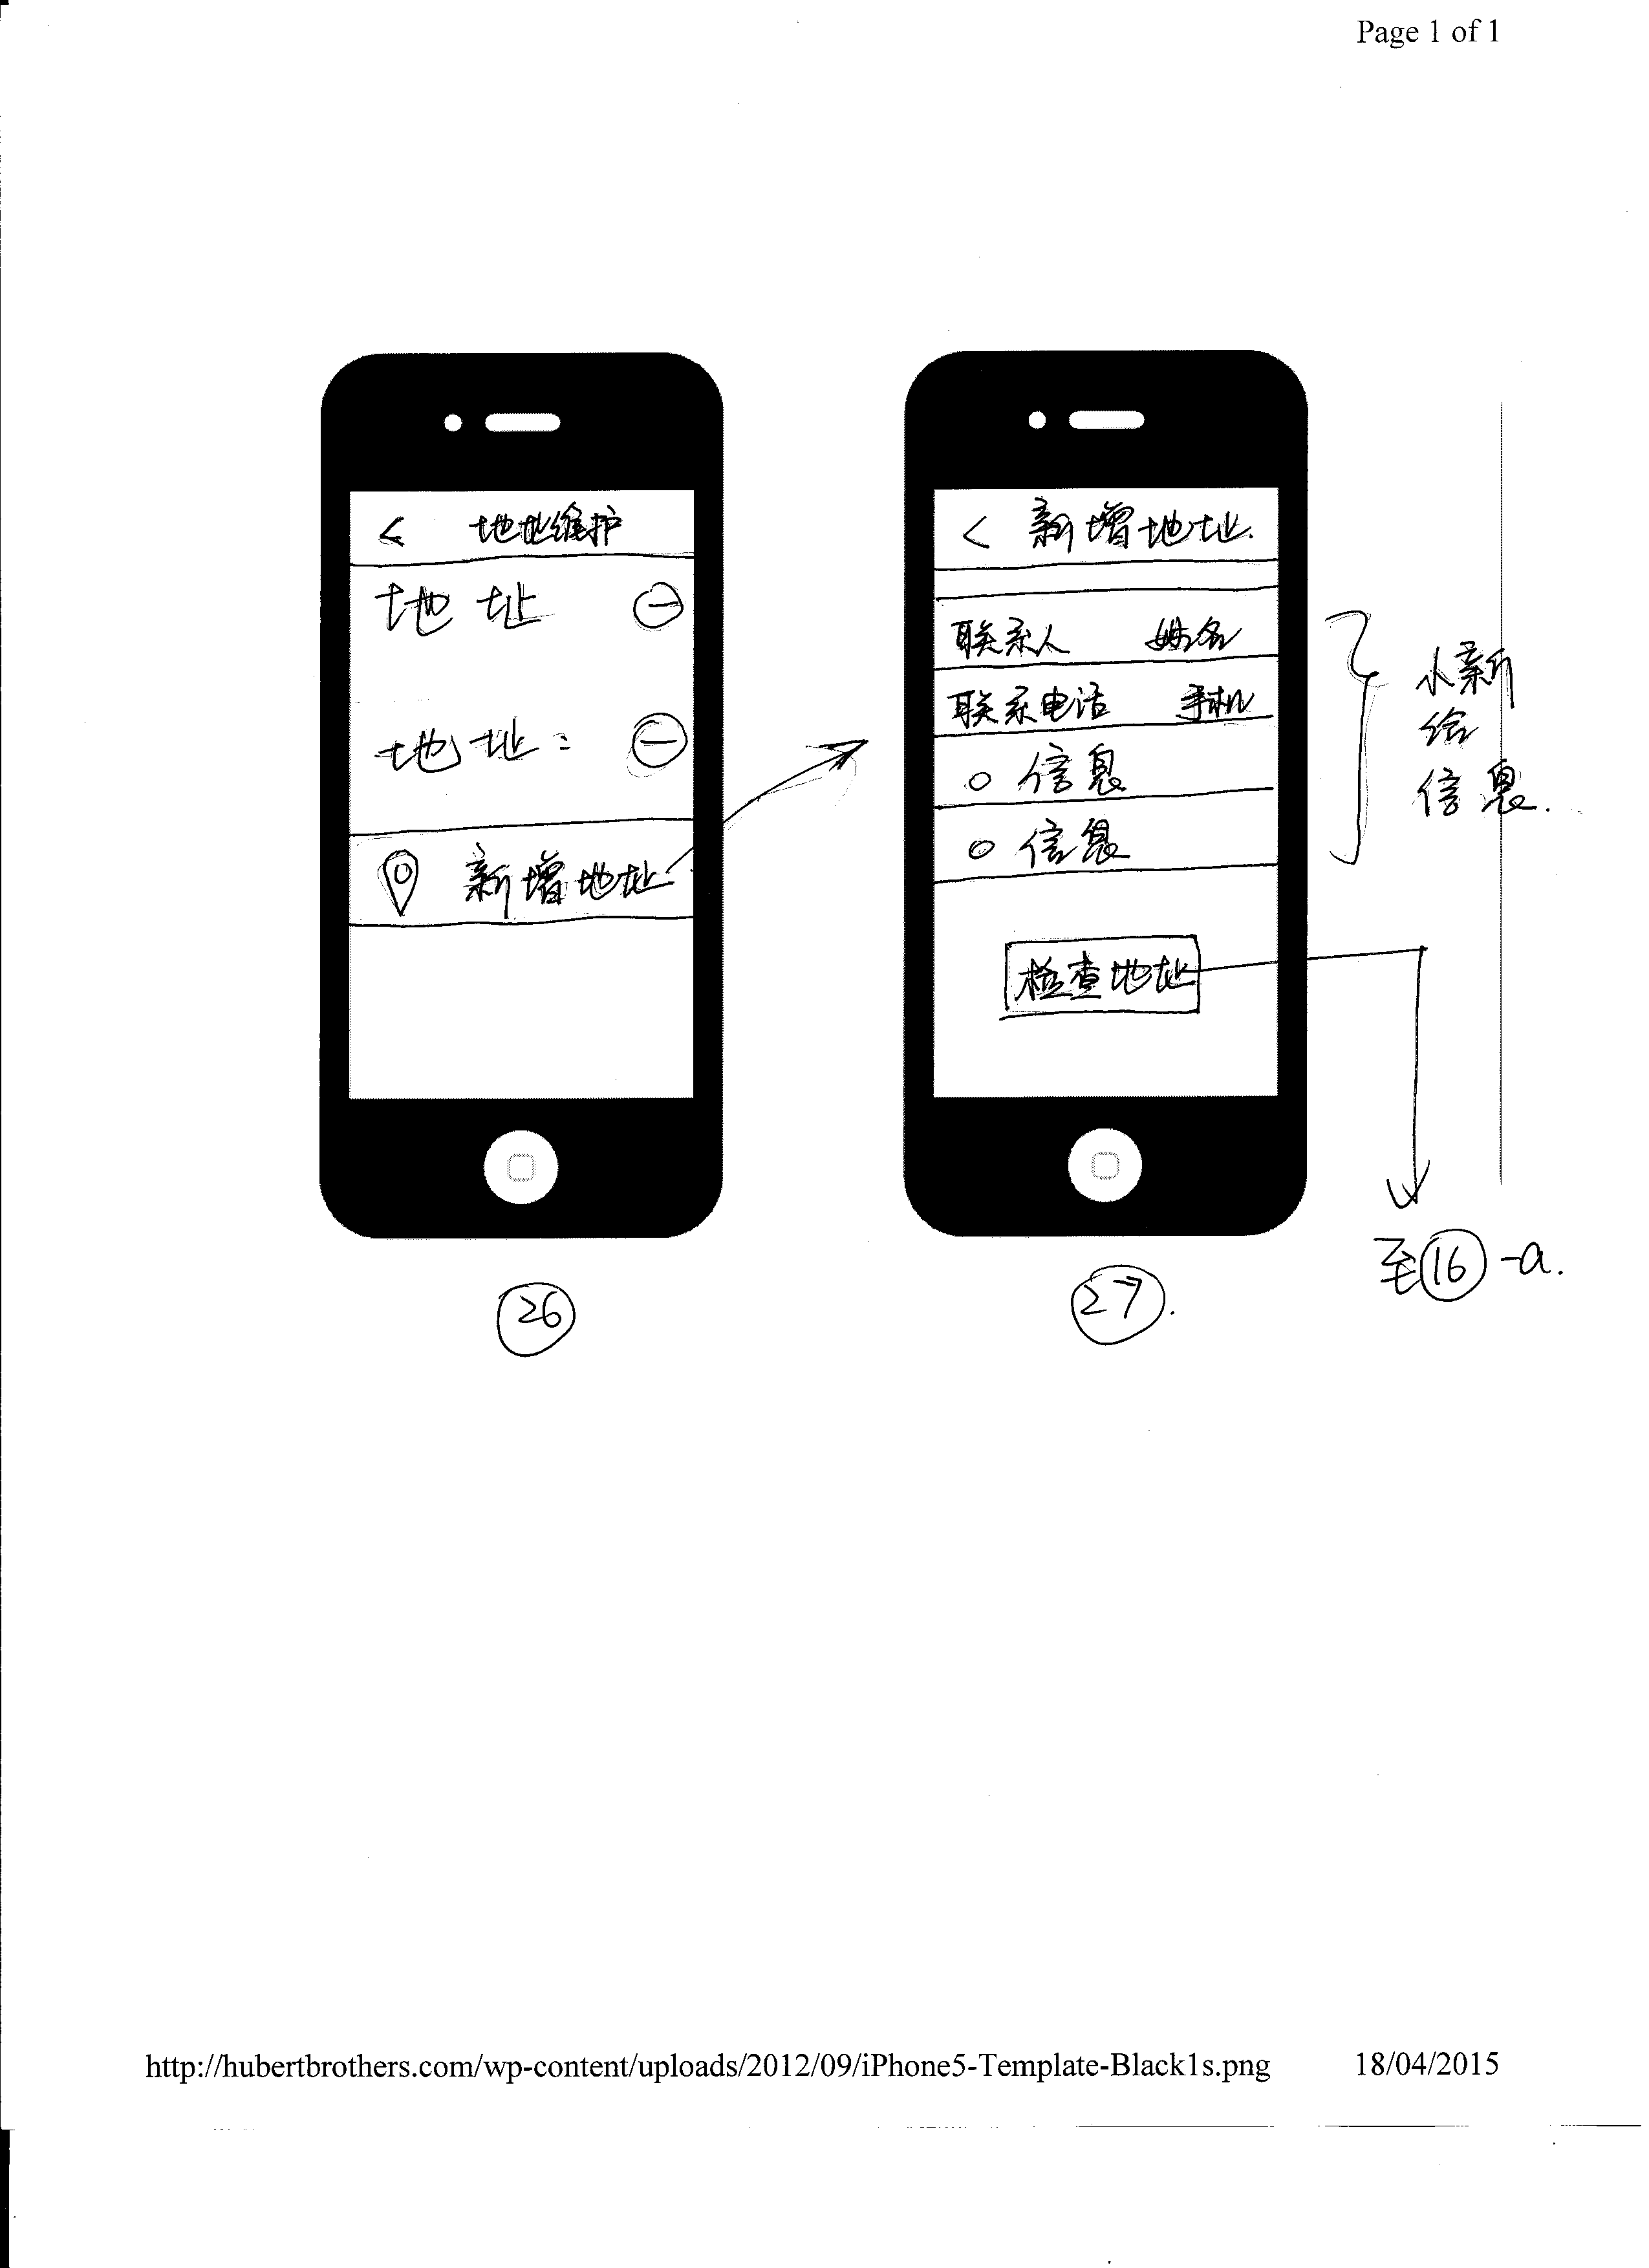 Page 1 of 1
< 地址维护
地址 ⊖
地址: ⊖
新增地址
26
< 新增地址.
联系人 姓名
联系电话 手机
○ 信息
○ 信息
检查地址
27.
小新
给
信息.
至⑯-a.
http://hubertbrothers.com/wp-content/uploads/2012/09/iPhone5-Template-Black1s.png 18/04/2015